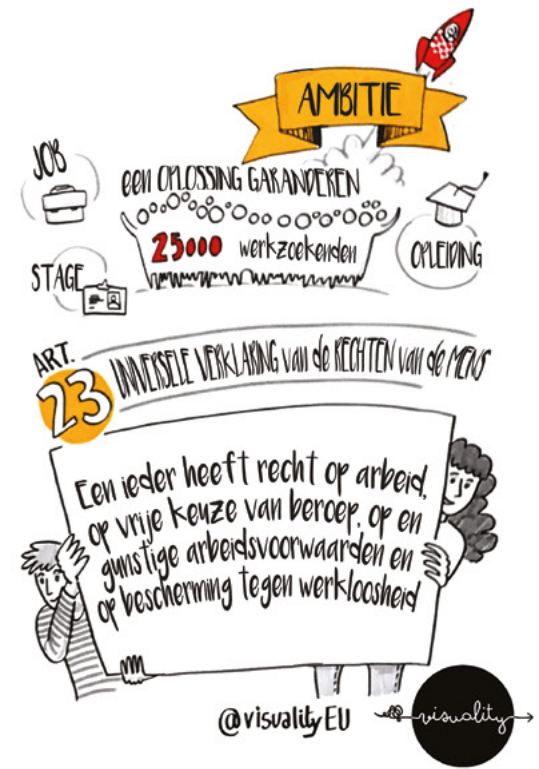 AMBITIE
JOB
een OPLOSSING GARANDEREN
25000 werkzoekenden
OPLEIDING
STAGE
ART.
23
UNIVERSELE VERKLARING van de RECHTEN van de MENS
Een ieder heeft recht op arbeid,
op vrije keuze van beroep, op en
gunstige arbeidsvoorwaarden en
op bescherming tegen werkloosheid
@visuality EU
visuality